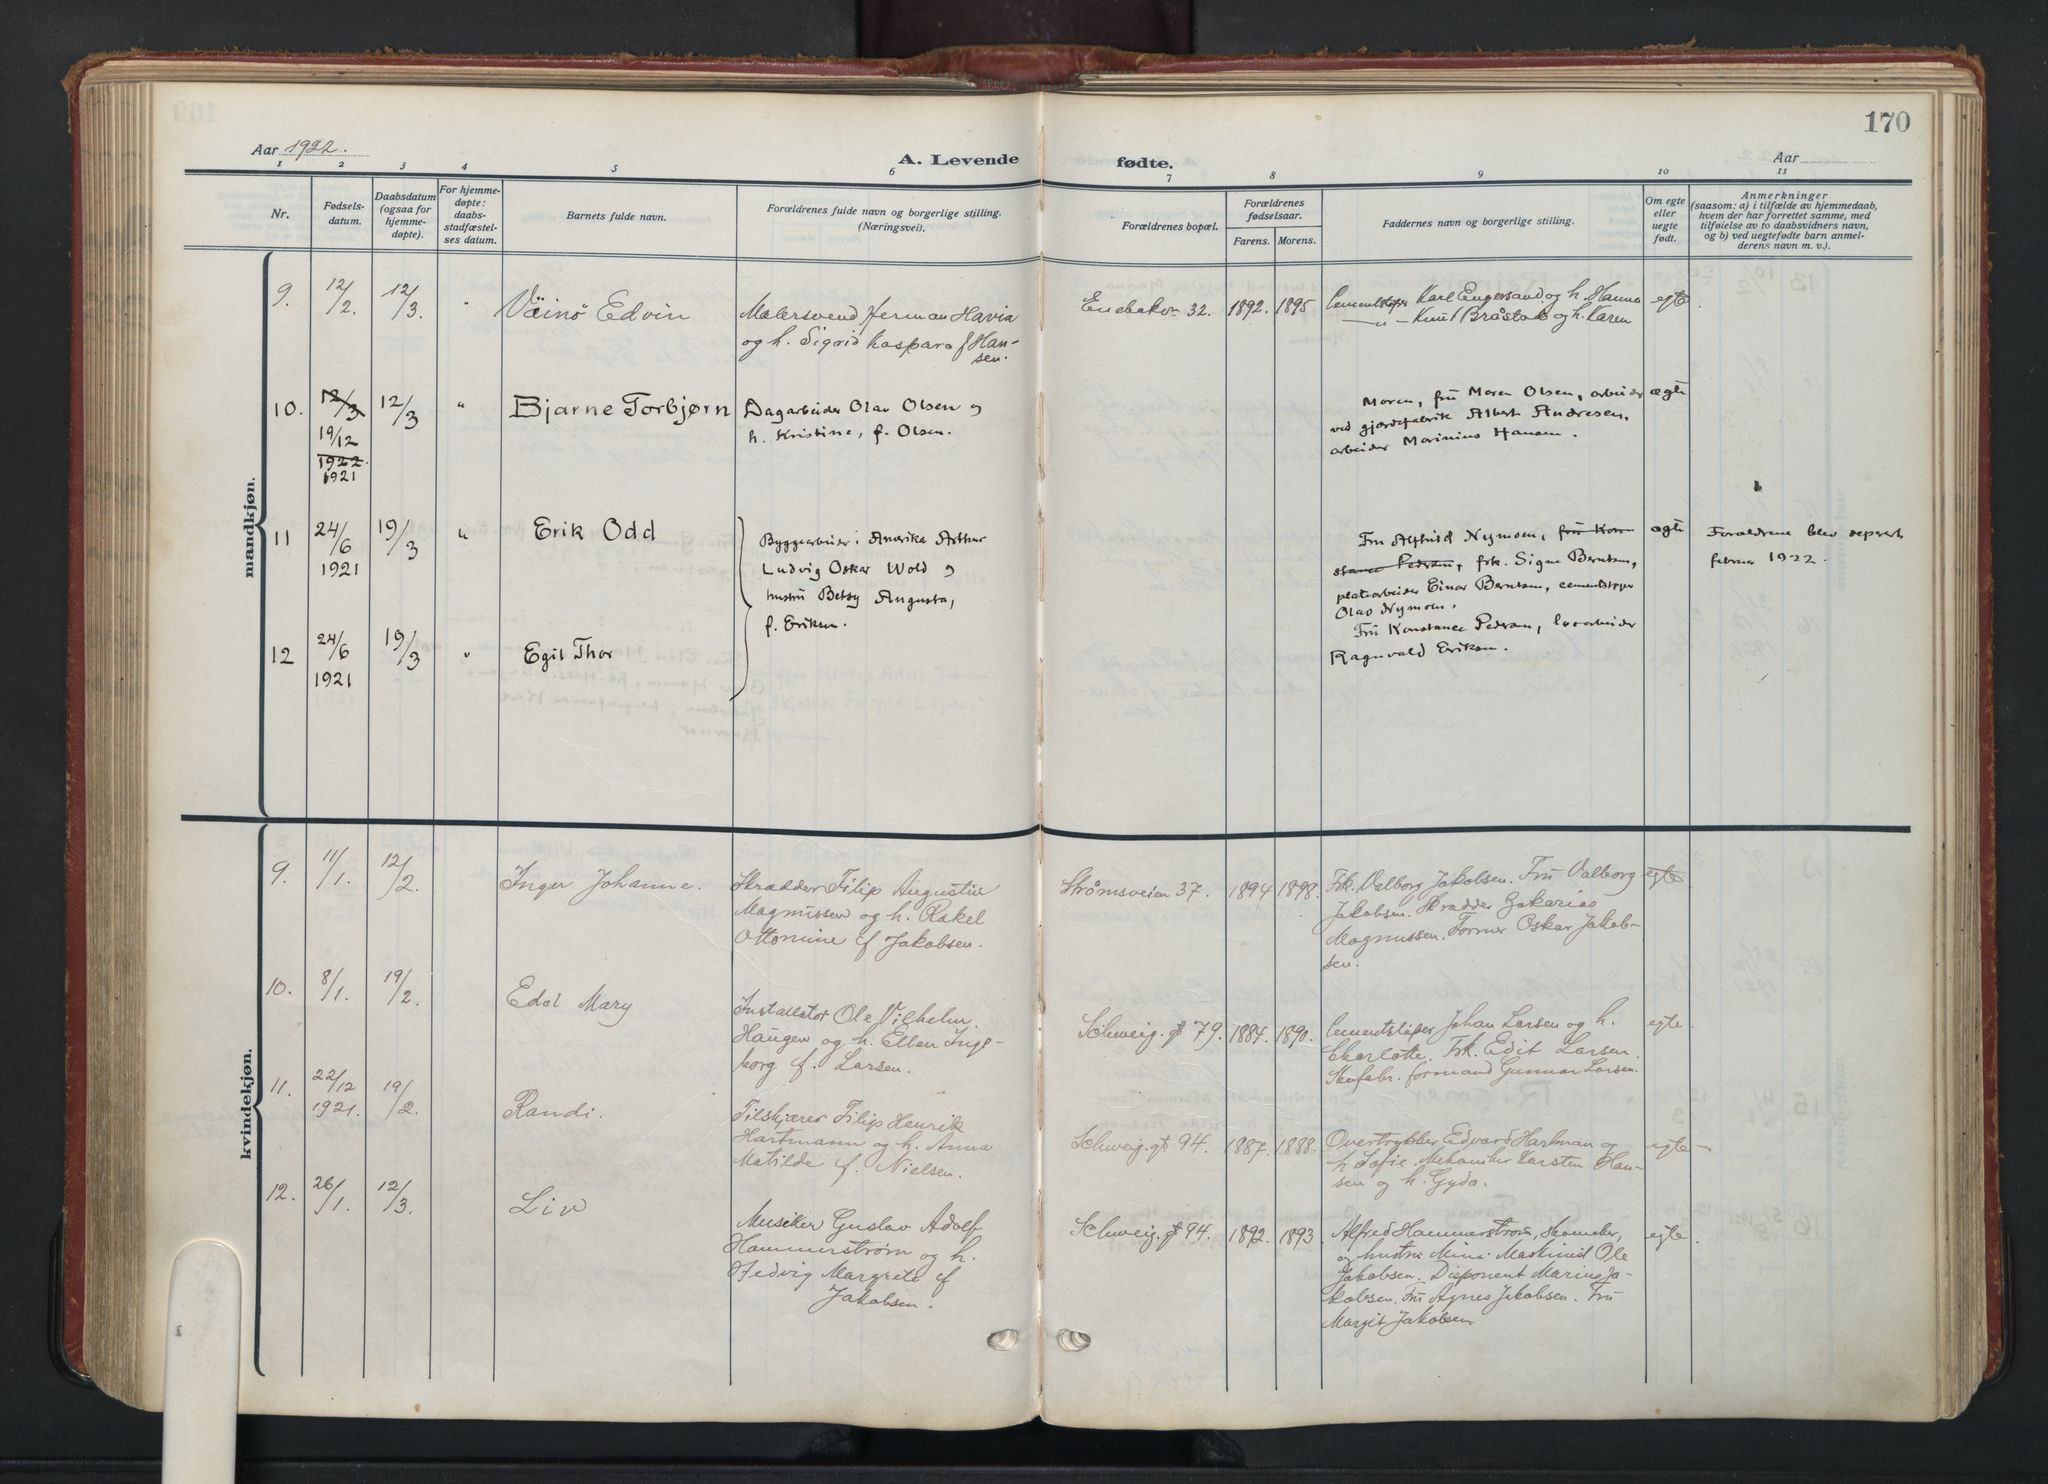 170
Aar 1922.
A. Levende fødte.
Aar
1 2 3 4 5 6 7 8 9 10 11
Nr.
Fødsels-
datum.
Daabsdatum
(ogsaa for
hjemme-
døpte).
For hjemme-
døpte:
daabs-
stadfæstel-
ses datum.
Barnets fulde navn.
Forældrenes fulde navn og borgerlige stilling.
(Næringsvei).
Forældrenes bopæl.
Forældrenes
fødselsaar.
Farens. Morens.
Faddernes navn og borgerlige stilling.
Om egte
eller
uegte
født.
Anmerkninger
(saasom: a) i tilfælde av hjemmedaab,
hvem der har forrettet samme, med
tilføielse av to daabsvidners navn,
og b) ved uegtefødte barn anmel-
derens navn m. v.).
mandkjøn.
9. 12/2. 12/3. " Väinö Edvin
Malersvend Herman Havia
og h. Sigrid Kaspara f Han-
sen.
Enebakvn 32. 1892. 1895
Cementstøper Karl Engersand og h. Hanna
—"— Knut Bråstad og h. Karen
egte
10. 12/3 12/3 " Bjarne Torbjørn
19/12
1922.
1921
Dagarbeider Olav Olsen og
h. Kristine, f. Olsen.
Moren, fru Maren Olsen, arbeider
ved gjærdefabrik Albert Andresen,
arbeider Marinius Hansen.
ægte
11 24/6 19/3 " Erik Odd
1921
Byggearbeider i Amerika Arthur
Ludvig Oskar Wold og
hustru Betsy Augusta,
f. Eriksen.
Fru Alfhild Nymoen, fru Kon
stance Pedersen, frk. Signe Berntsen,
platearbeider Einar Berntsen, cementstøper
Olav Nymoen.
ægte
Forældrene blev seprert
februar 1922.
12 24/6 19/3 " Egil Thor
1921
Fru Konstance Pedersen, lærarbeider
Ragnvald Eriksen.
kvindekjøn.
9. 11/1. 12/2. Inger Johanne.
Skrædder Filip Augustin
Magnussen og h. Rakel
Ottomine f Jakobsen.
Strømsveien 37. 1894 1898.
Frk. Valborg Jakobsen. Fru Valborg
Jakobsen. Skrædder Zakarias
Magnussen. Former Oskar Jakob-
sen.
egte
10. 8/1. 19/2. Edel Mary
Installatør Ole Vilhelm
Haugen og h. Ellen Inge-
borg f. Larsen.
Schweig. gt 79. 1884. 1890.
Cementstøper Johan Larsen og h.
Charlotte. Frk. Edit Larsen.
Skofabr. formand Gunnar Larsen.
egte
11. 22/12 19/2. Randi.
1921.
Tilskjærer Filip Henrik
Hartmann og h. Anna
Matilde f. Nielsen.
Schweig. gt 94. 1887. 1888.
Overtrykker Edvard Hartman og
h Sofie. Mekaniker Karsten Han-
sen og h. Gyda.
egte
12. 26/1. 12/3. Liv
Musiker Gustav Adolf
Hammerstrøm og h.
Hedvig Margrete f
Jakobsen.
Schweig. gt 94. 1892. 1893.
Alfred Hammerstrøm, Skomaker,
og hustru Mina. Maskinist Ole
Jakobsen. Disponent Marius Ja-
kobsen. Fru Agnes Jakobsen. Fru
Margit Jakobsen
egte